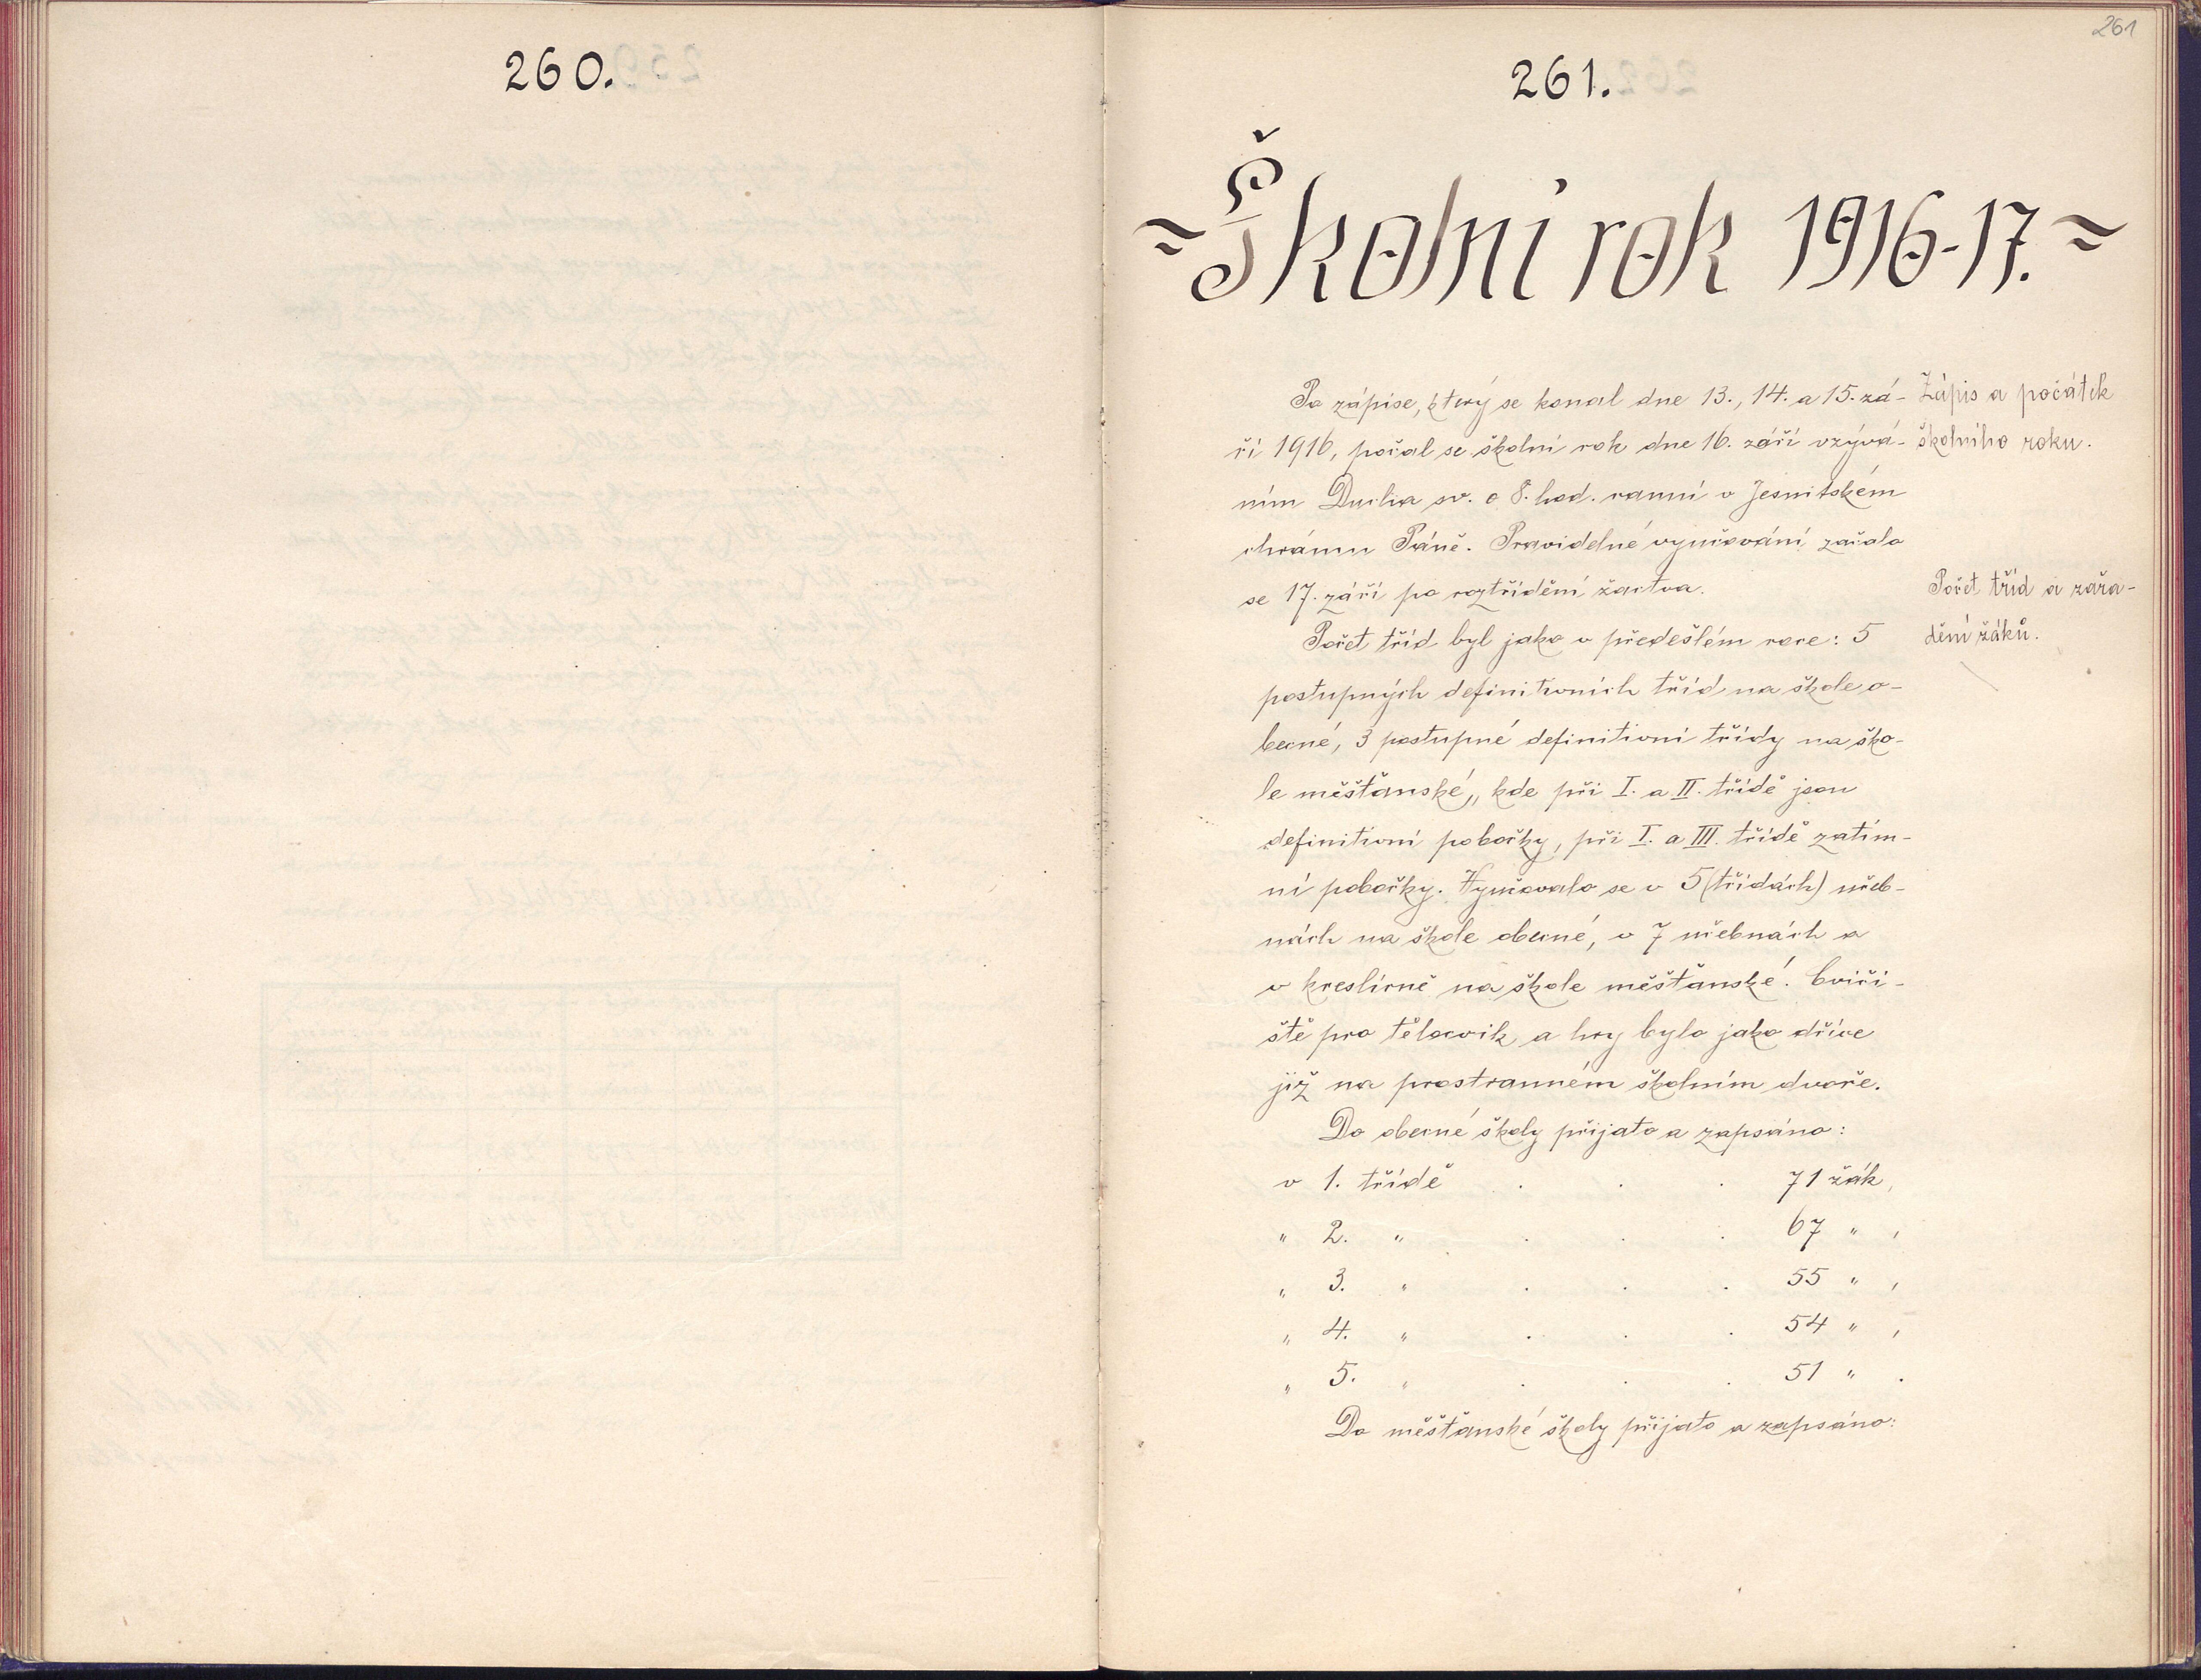 260.
261
261.
~ Školní rok 1916-17. ~
Po zápise, který se konal dne 13., 14. a 15. zá-
ří 1916, počal se školní rok dne 16. září vzývá-
ním Ducha sv. o 8. hod. ranní v Jesuitském
chrámu Páně. Pravidelné vyučování začalo
se 17. září po roztřídění žactva.
Zápis a počátek
školního roku.
Počet tříd byl jako v předešlém roce: 5
postupných definitivních tříd na škole o-
becné, 3 postupné definitivní třídy na ško-
le měšťanské, kde při I. a II. třídě jsou
definitivní pobočky, při I. a III. třídě zatím-
ní pobočky. Vyučovalo se v 5 (třídách) učeb-
nách na škole obecné, v 7 učebnách a
v kreslírně na škole měšťanské. Cviči-
ště pro tělocvik a hry bylo jako dříve
již na prostranném školním dvoře.
Počet tříd a zařa-
dění žáků.
Do obecné školy přijato a zapsáno:
v 1. třídě . . . 71 žák,
" 2. " . . . 67 " ,
" 3. " . . . 55 " ,
" 4. " . . . 54 " ,
" 5. " . . . 51 " .
Do měšťanské školy přijato a zapsáno: